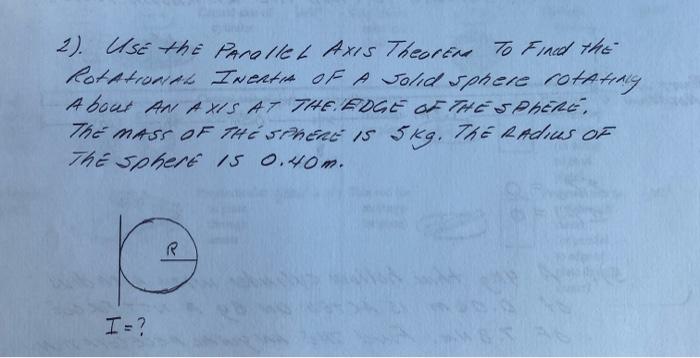 2). USE the PARAlleL AXIS TheoREm To Find the
RotAtionAL InERtIA OF A Solid sphere rotAting
About AN AXIS AT THE EDGE OF THE SPhERE.
ThE MASS OF THE SPHERE IS 5kg. ThE RADius OF
ThE sphere IS 0.40m.
R
I = ?